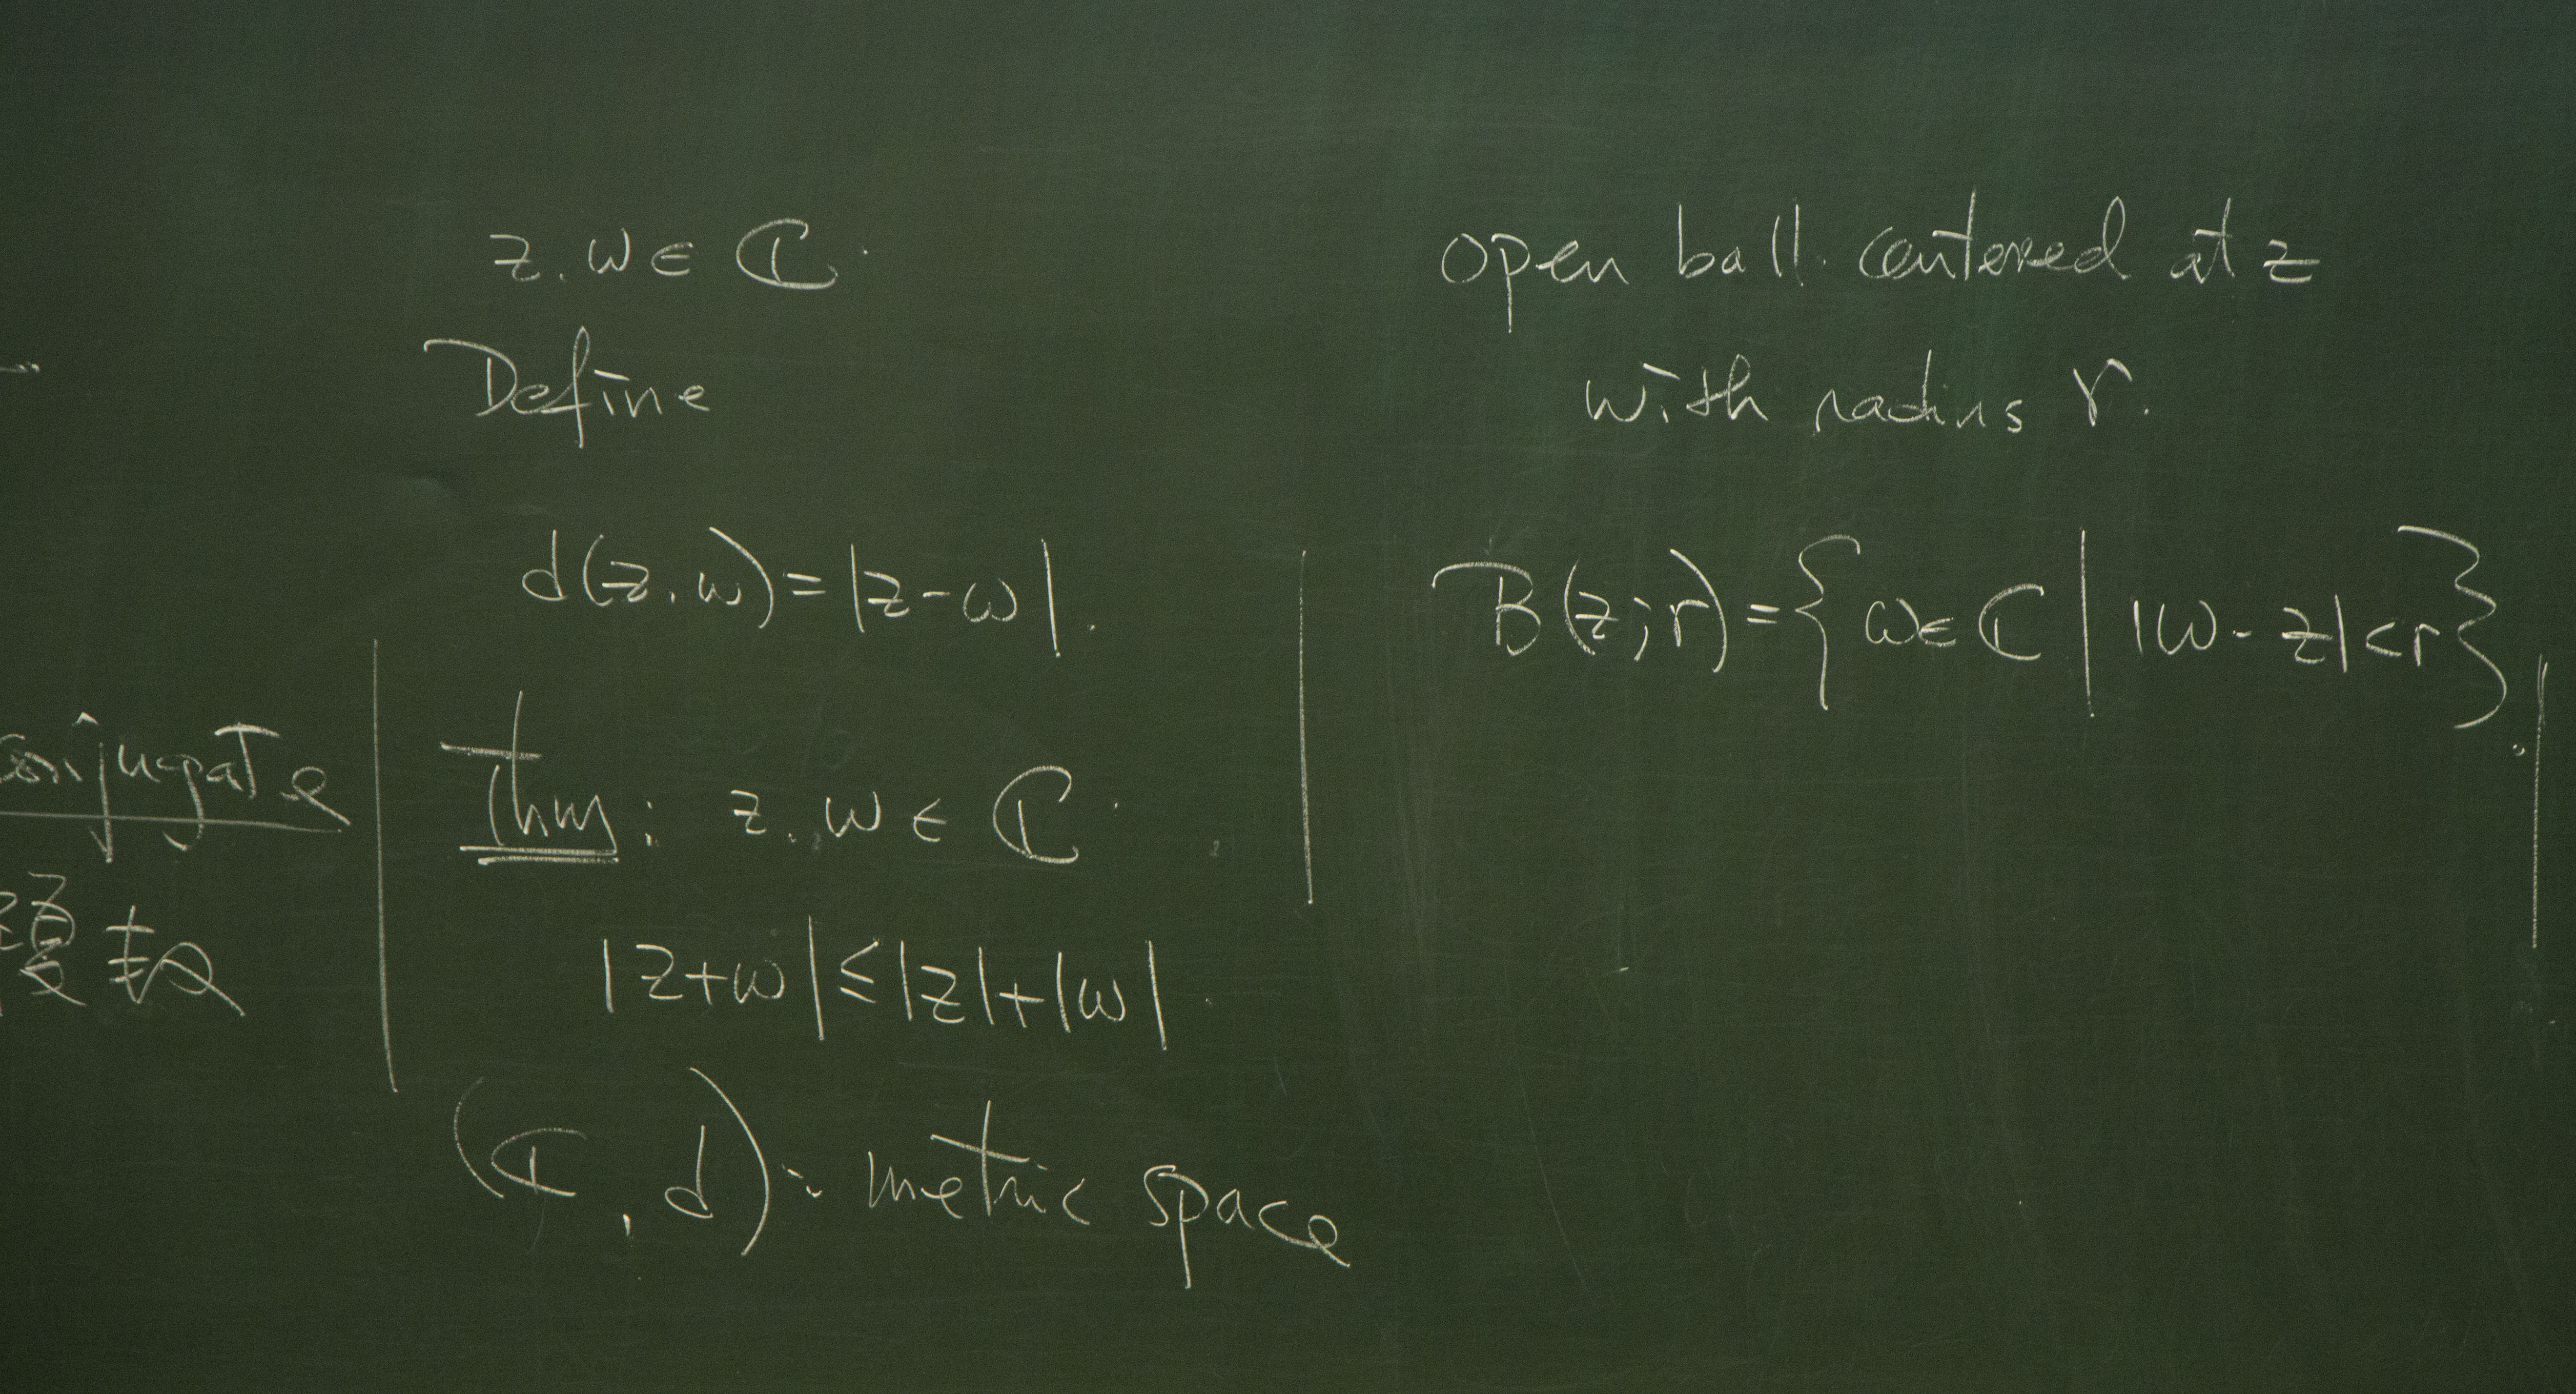 conjugate
z, w ∈ ℂ.
Define
d(z, w) = |z - w|.
Thm: z, w ∈ ℂ.
|z + w| ≤ |z| + |w|.
(ℂ, d): metric space
open ball centered at z
with radius r.
B(z; r) = { w ∈ ℂ | |w - z| < r }.